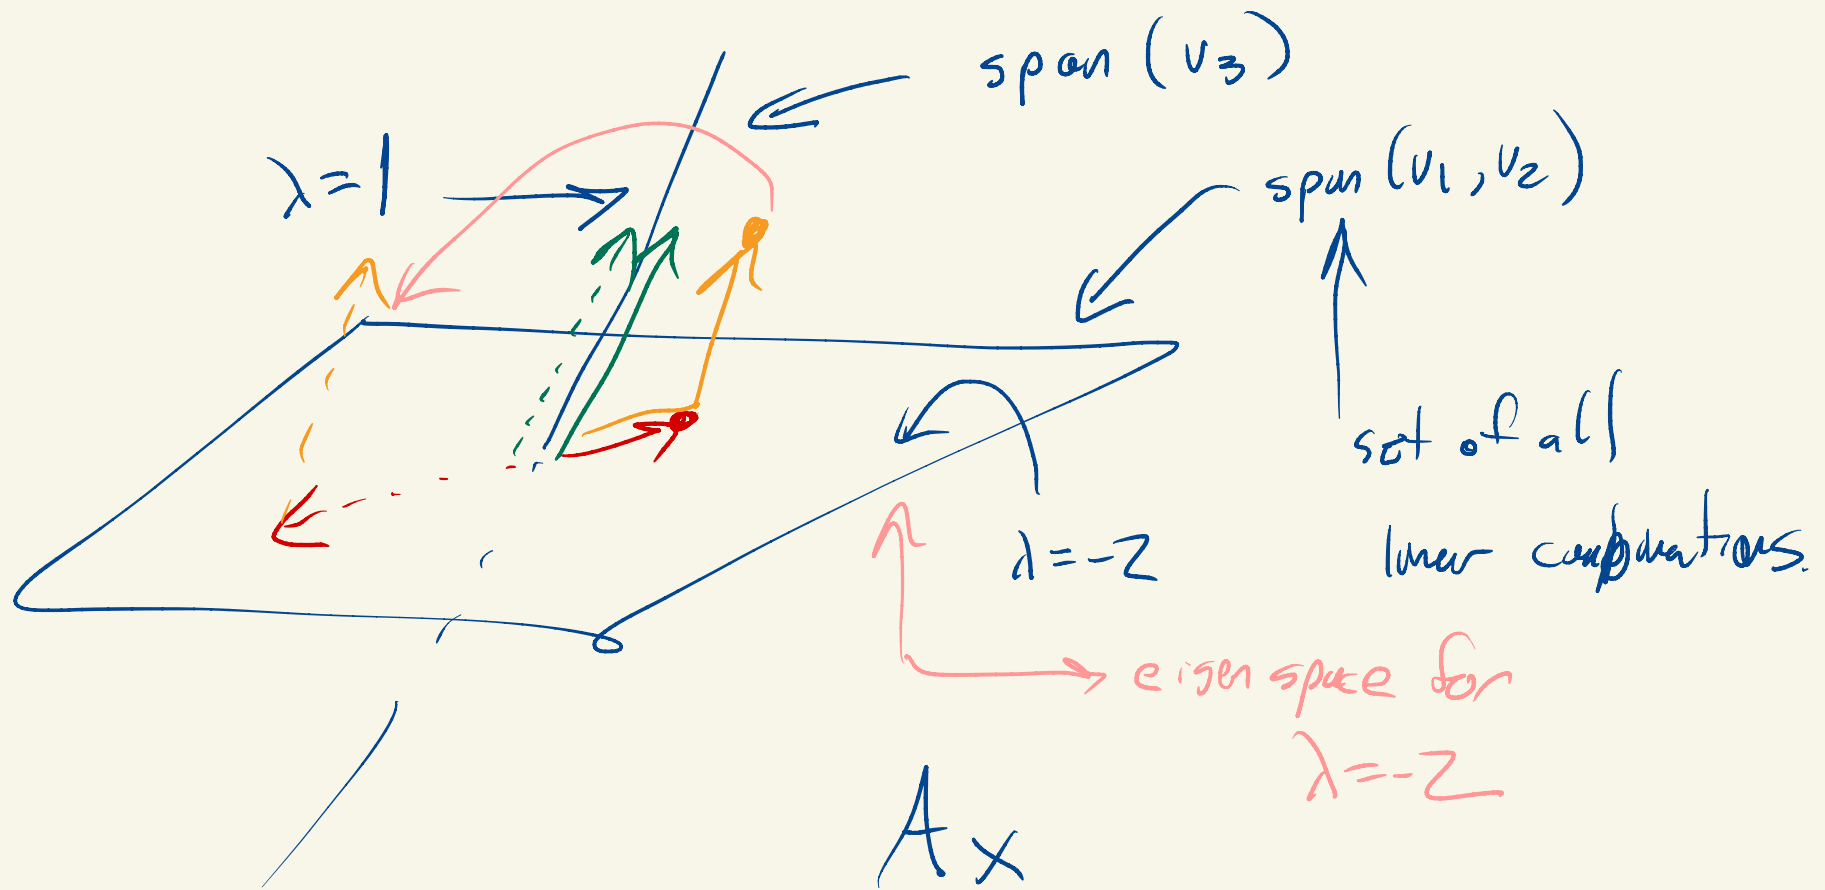 span (v3)
λ=1
span (v1, v2)
set of all
linear combinations.
λ=-2
eigenspace for
λ=-2
Ax